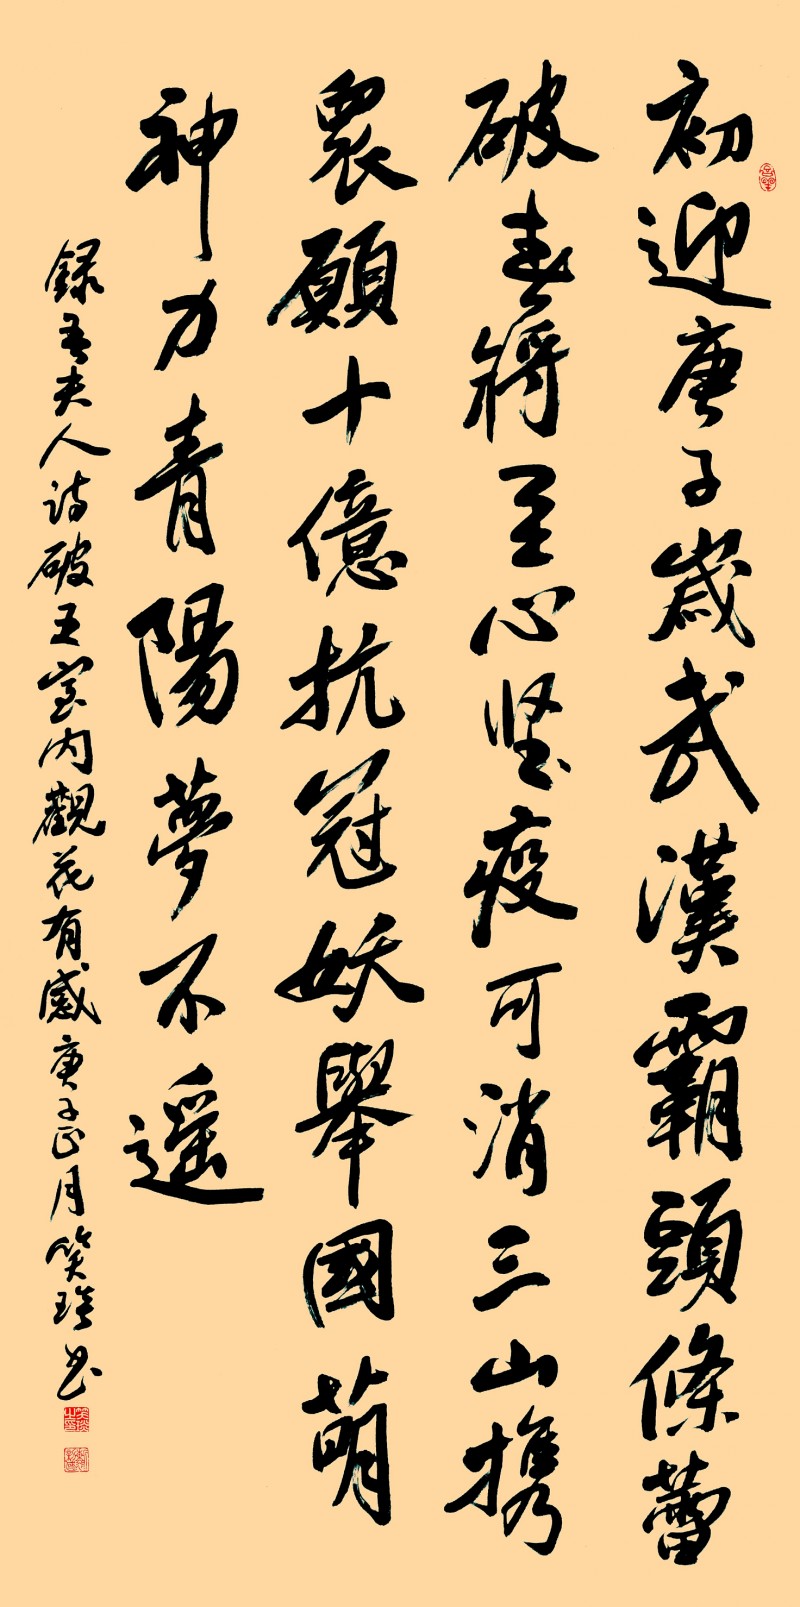 初迎庚子歲武漢霸頭條蕾
破春將至心坚疫可消三山携
眾願十億抗冠妖舉國萌
神力青陽夢不遥
録吾夫人诗破五室内觀花有感庚子正月笑瑢书